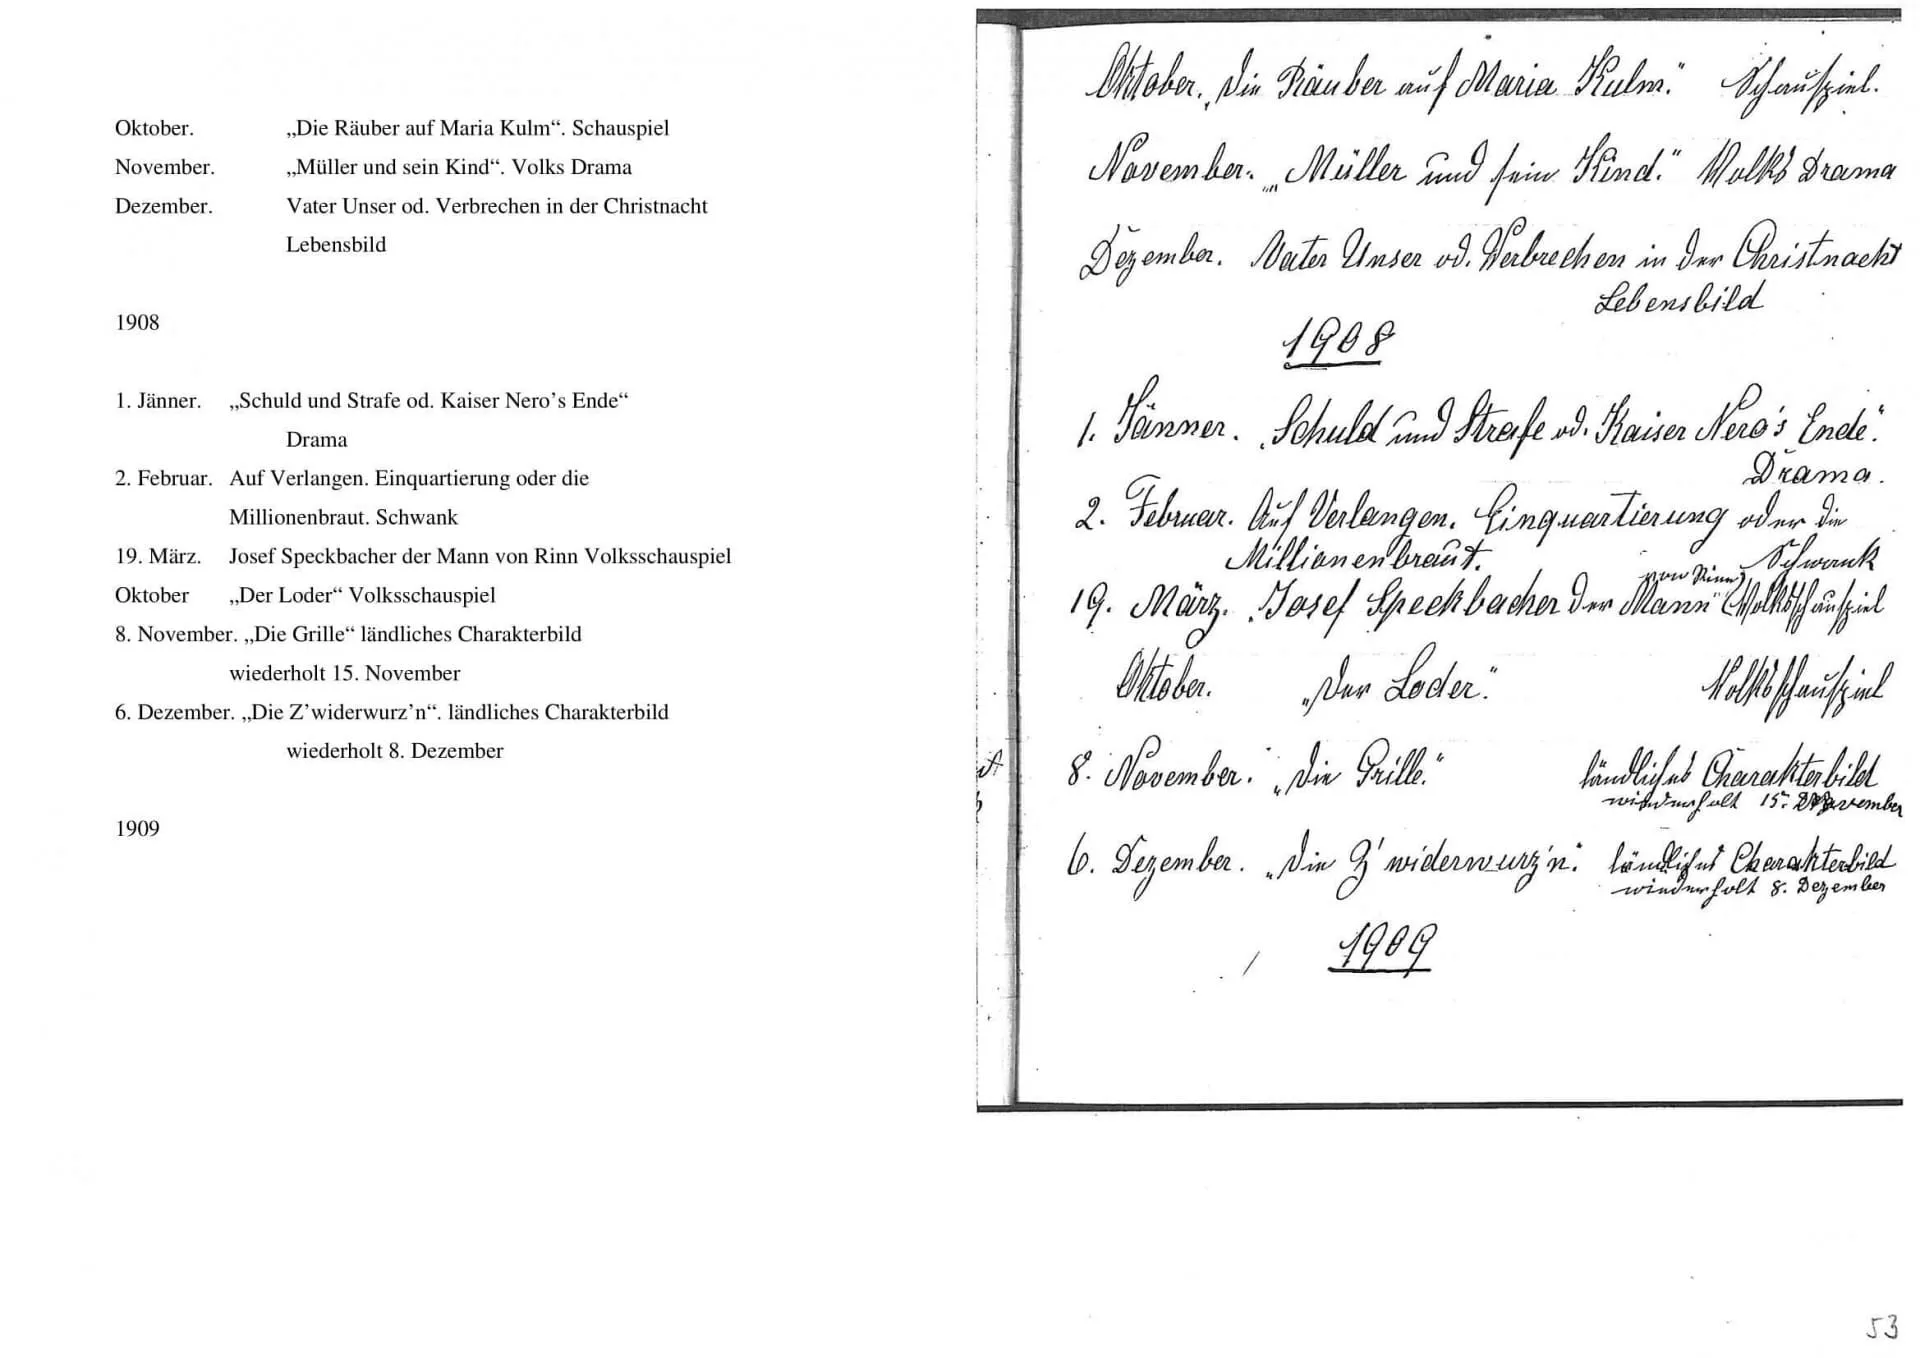 Oktober. „Die Räuber auf Maria Kulm“. Schauspiel
November. „Müller und sein Kind“. Volks Drama
Dezember. Vater Unser od. Verbrechen in der Christnacht
Lebensbild
1908
1. Jänner. „Schuld und Strafe od. Kaiser Nero’s Ende“
Drama
2. Februar. Auf Verlangen. Einquartierung oder die
Millionenbraut. Schwank
19. März. Josef Speckbacher der Mann von Rinn Volksschauspiel
Oktober „Der Loder“ Volksschauspiel
8. November. „Die Grille“ ländliches Charakterbild
wiederholt 15. November
6. Dezember. „Die Z’widerwurz’n“. ländliches Charakterbild
wiederholt 8. Dezember
1909
Oktober. „Die Räuber auf Maria Kulm.“ Schauspiel.
November. „Müller und sein Kind.“ Volks Drama
Dezember. Vater Unser od. Verbrechen in der Christnacht
Lebensbild
1908
1. Jänner. „Schuld und Strafe od. Kaiser Nero's Ende“.
Drama.
2. Februar. Auf Verlangen. Einquartierung oder die
Millionenbraut. Schwank
von Rinn
19. März. „Josef Speckbacher der Mann“ Volksschauspiel
Oktober. „Der Loder.“ Volksschauspiel
8. November. „Die Grille.“ ländliches Charakterbild
wiederholt 15. November
6. Dezember. „Die Z'widerwurz'n.“ ländliches Charakterbild
wiederholt 8. Dezember
1909
53